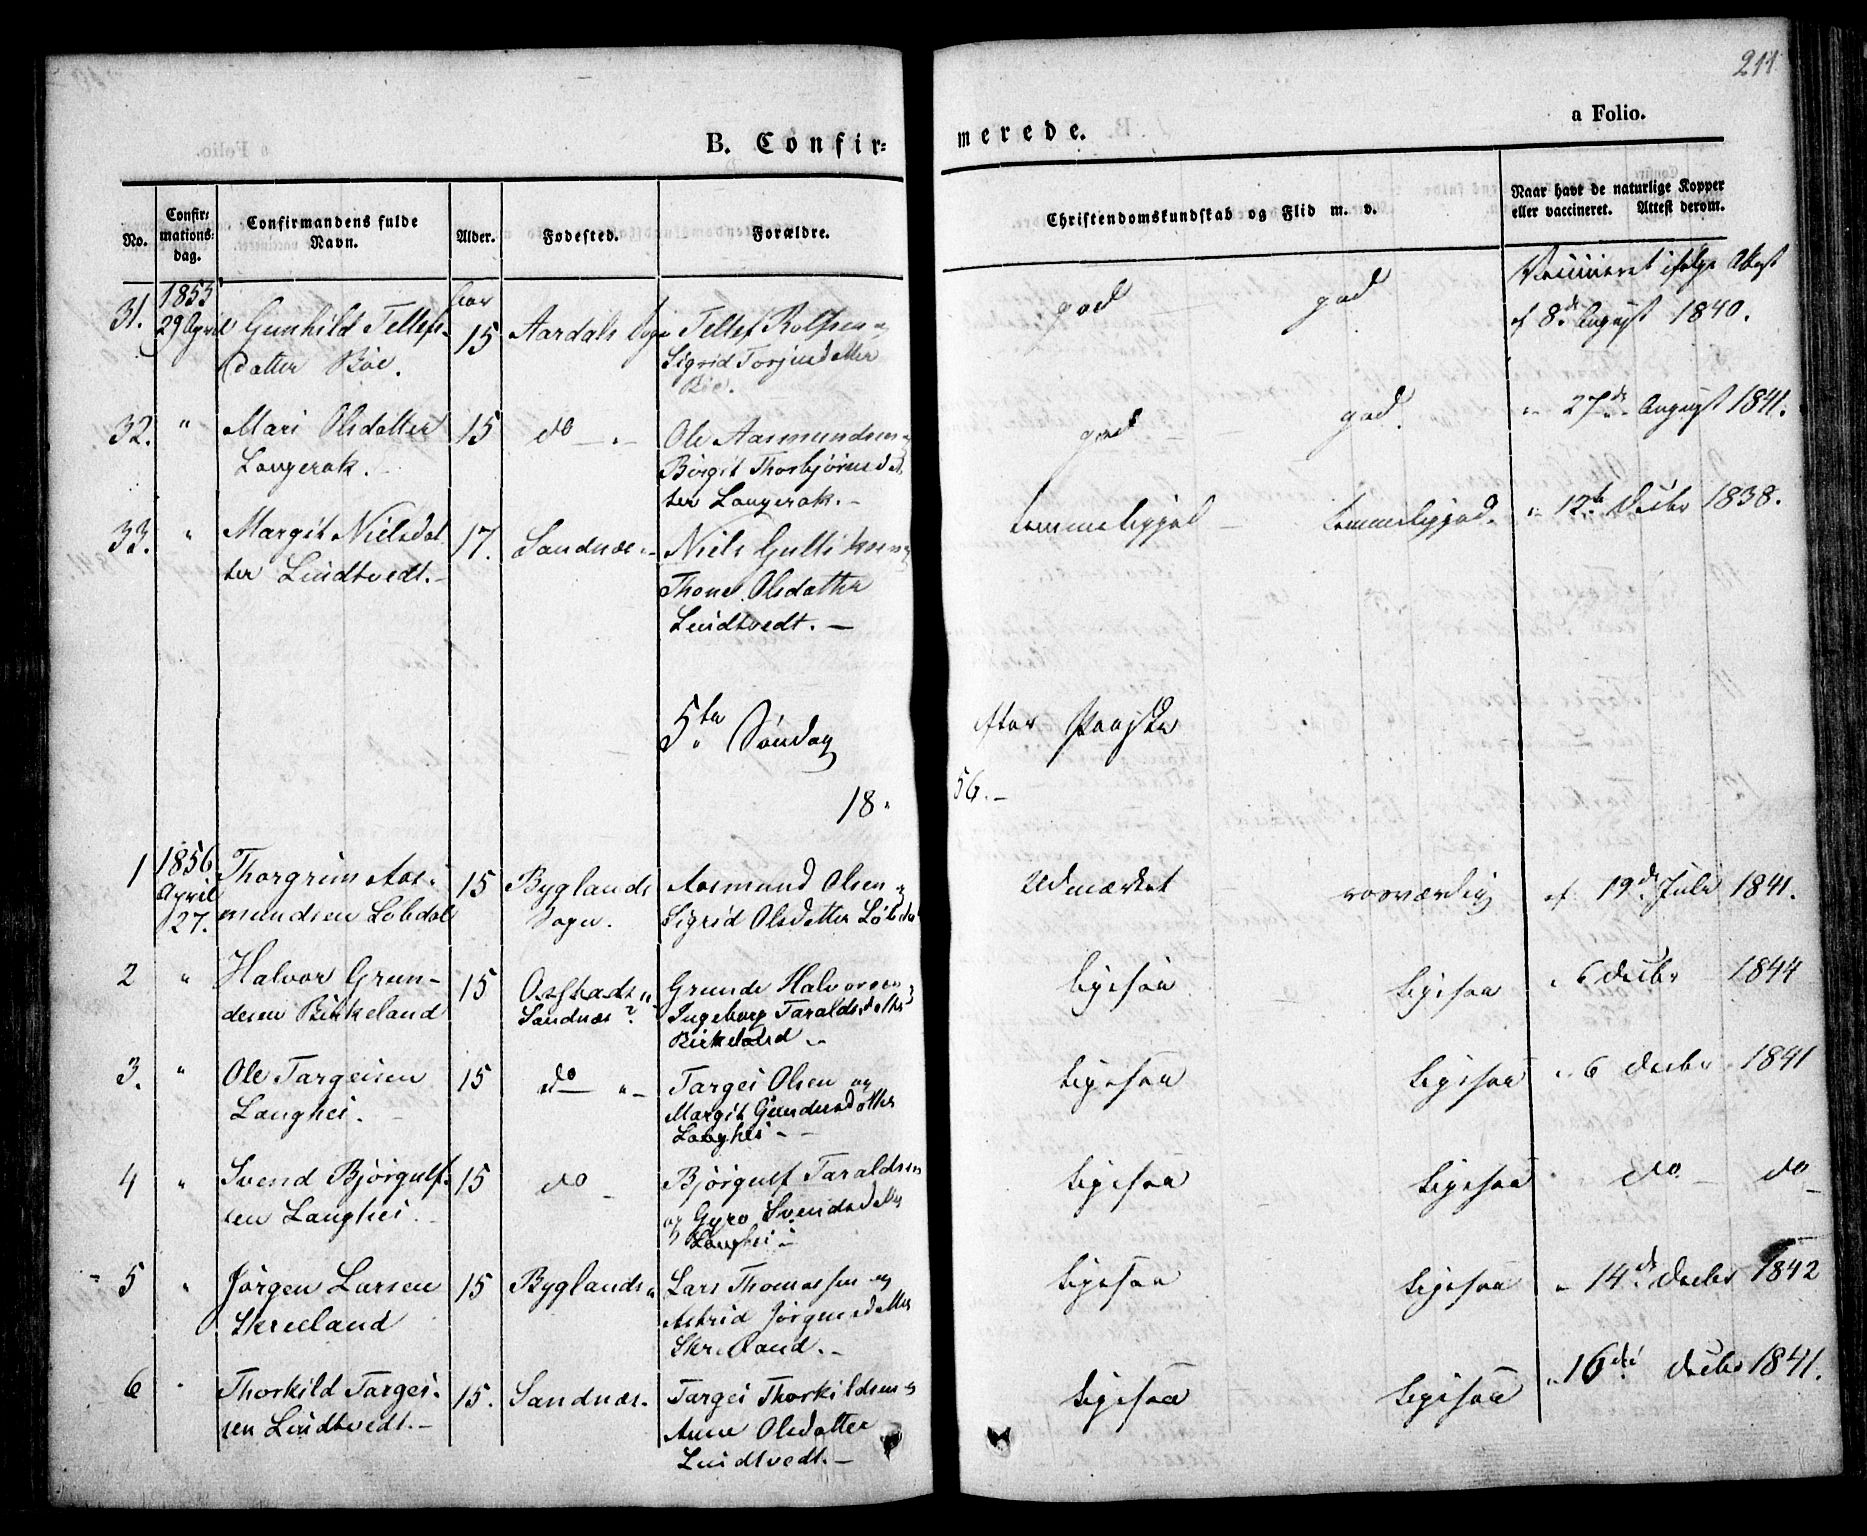 211
a Folio.
B. Confir=
merede.
No.
Confir=
mations=
dag.
Confirmandens fulde
Navn.
Alder.
Fødested.
Forældre.
Christendomskundskab og Flid m. v.
Naar havt de naturlige Kopper
eller vaccineret. Attest derom.
31.
1855
29 April
Gunhild Tellefs-
datter Bøe.
Aar
15
Aardals Sogn
Tellef Rolfsen og
Sigrid Torjusdatter
Bøe.
god
god
Vaccineret ifølge Attest
af 8de August 1840.
32.
"
Mari Olsdatter
Langerak.
15
do - " -
Ole Aasmundsen og
Birgit Thorbjørnsdat
ter Langerak. -
god
god.
" 27de August 1841.
33.
"
Margit Nielsdat
ter Lindtvedt. -
17.
Sandnæs "
Niels Gulliksen og
Thone Olsdatter
Lindtvedt. -
temmeliggod -
temmeliggod.
" 12te Decbr 1838.
5te Søndag
efter Paaske
18
56. -
1
1856
April
27.
Thorgrim Aas-
mundsen Løbdal
15
Byglands
Sogn.
Aasmund Olsen og
Sigrid Olsdatter Løbdal
Udmærket
rosværdig
af 19de Juli 1841.
2
"
Halvor Grun-
desen Birkeland
15
Ostskads "
Sandnæs ?
Grunde Halvorsen og
Ingeborg Taraldsdatter
Birkeland -
ligesaa
ligesaa
" 6 Decbr 1844
3.
"
Ole Targeisen
Langhei. -
15
do - " -
Targei Olsen og
Margit Gundersdatter
Langhei - -
ligesaa
ligesaa
" 6 Decbr 1841
4
"
Svend Bjørgulf-
sen Langhei.
15
do -
Bjørgulf Taraldsen
og Gyro Svendsdatter
Langhei -
ligesaa
ligesaa
" do - do -
5
"
Jørgen Larsen
Skreeland
15
Byglands "
Lars Thomassen og
Astrid Jørgensdatter
Skreeland. -
ligesaa
ligesaa
" 14de Decbr 1842
6
"
Thorkild Targei-
sen Lindtvedt. -
15.
Sandnæs.
Targei Thorkildsen og
Anne Olsdatter
Lindtvedt. -
ligesaa
ligesaa
" 16de Decbr 1841.